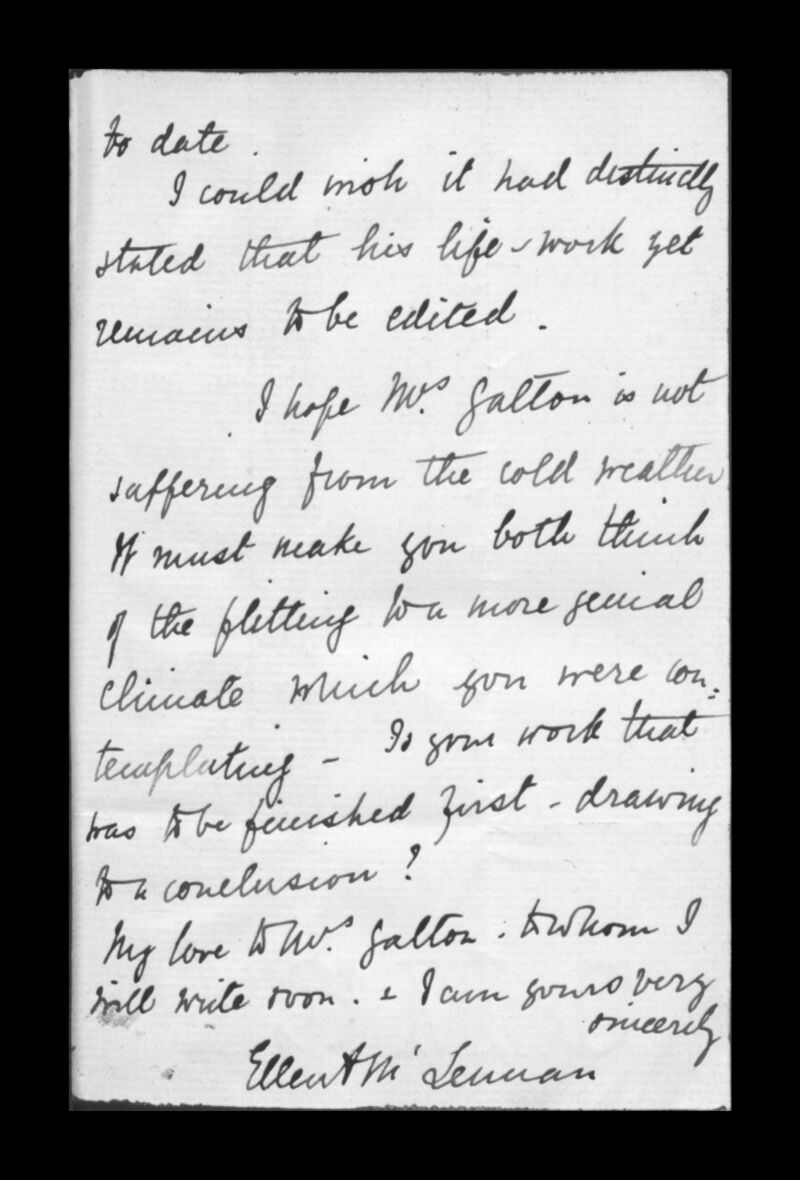 to date.
I could wish it had distinctly
stated that his life-work yet
remains to be edited.
I hope Mrs. Galton is not
suffering from the cold weather
It must make you both think
of the flitting to a more genial
climate which you were con:
templating - Is your work that
was to be finished first - drawing
to a conclusion?
My love to Mrs. Galton. to whom I
will write soon. & I am yours very
sincerely
Ellen A Mc Lennan